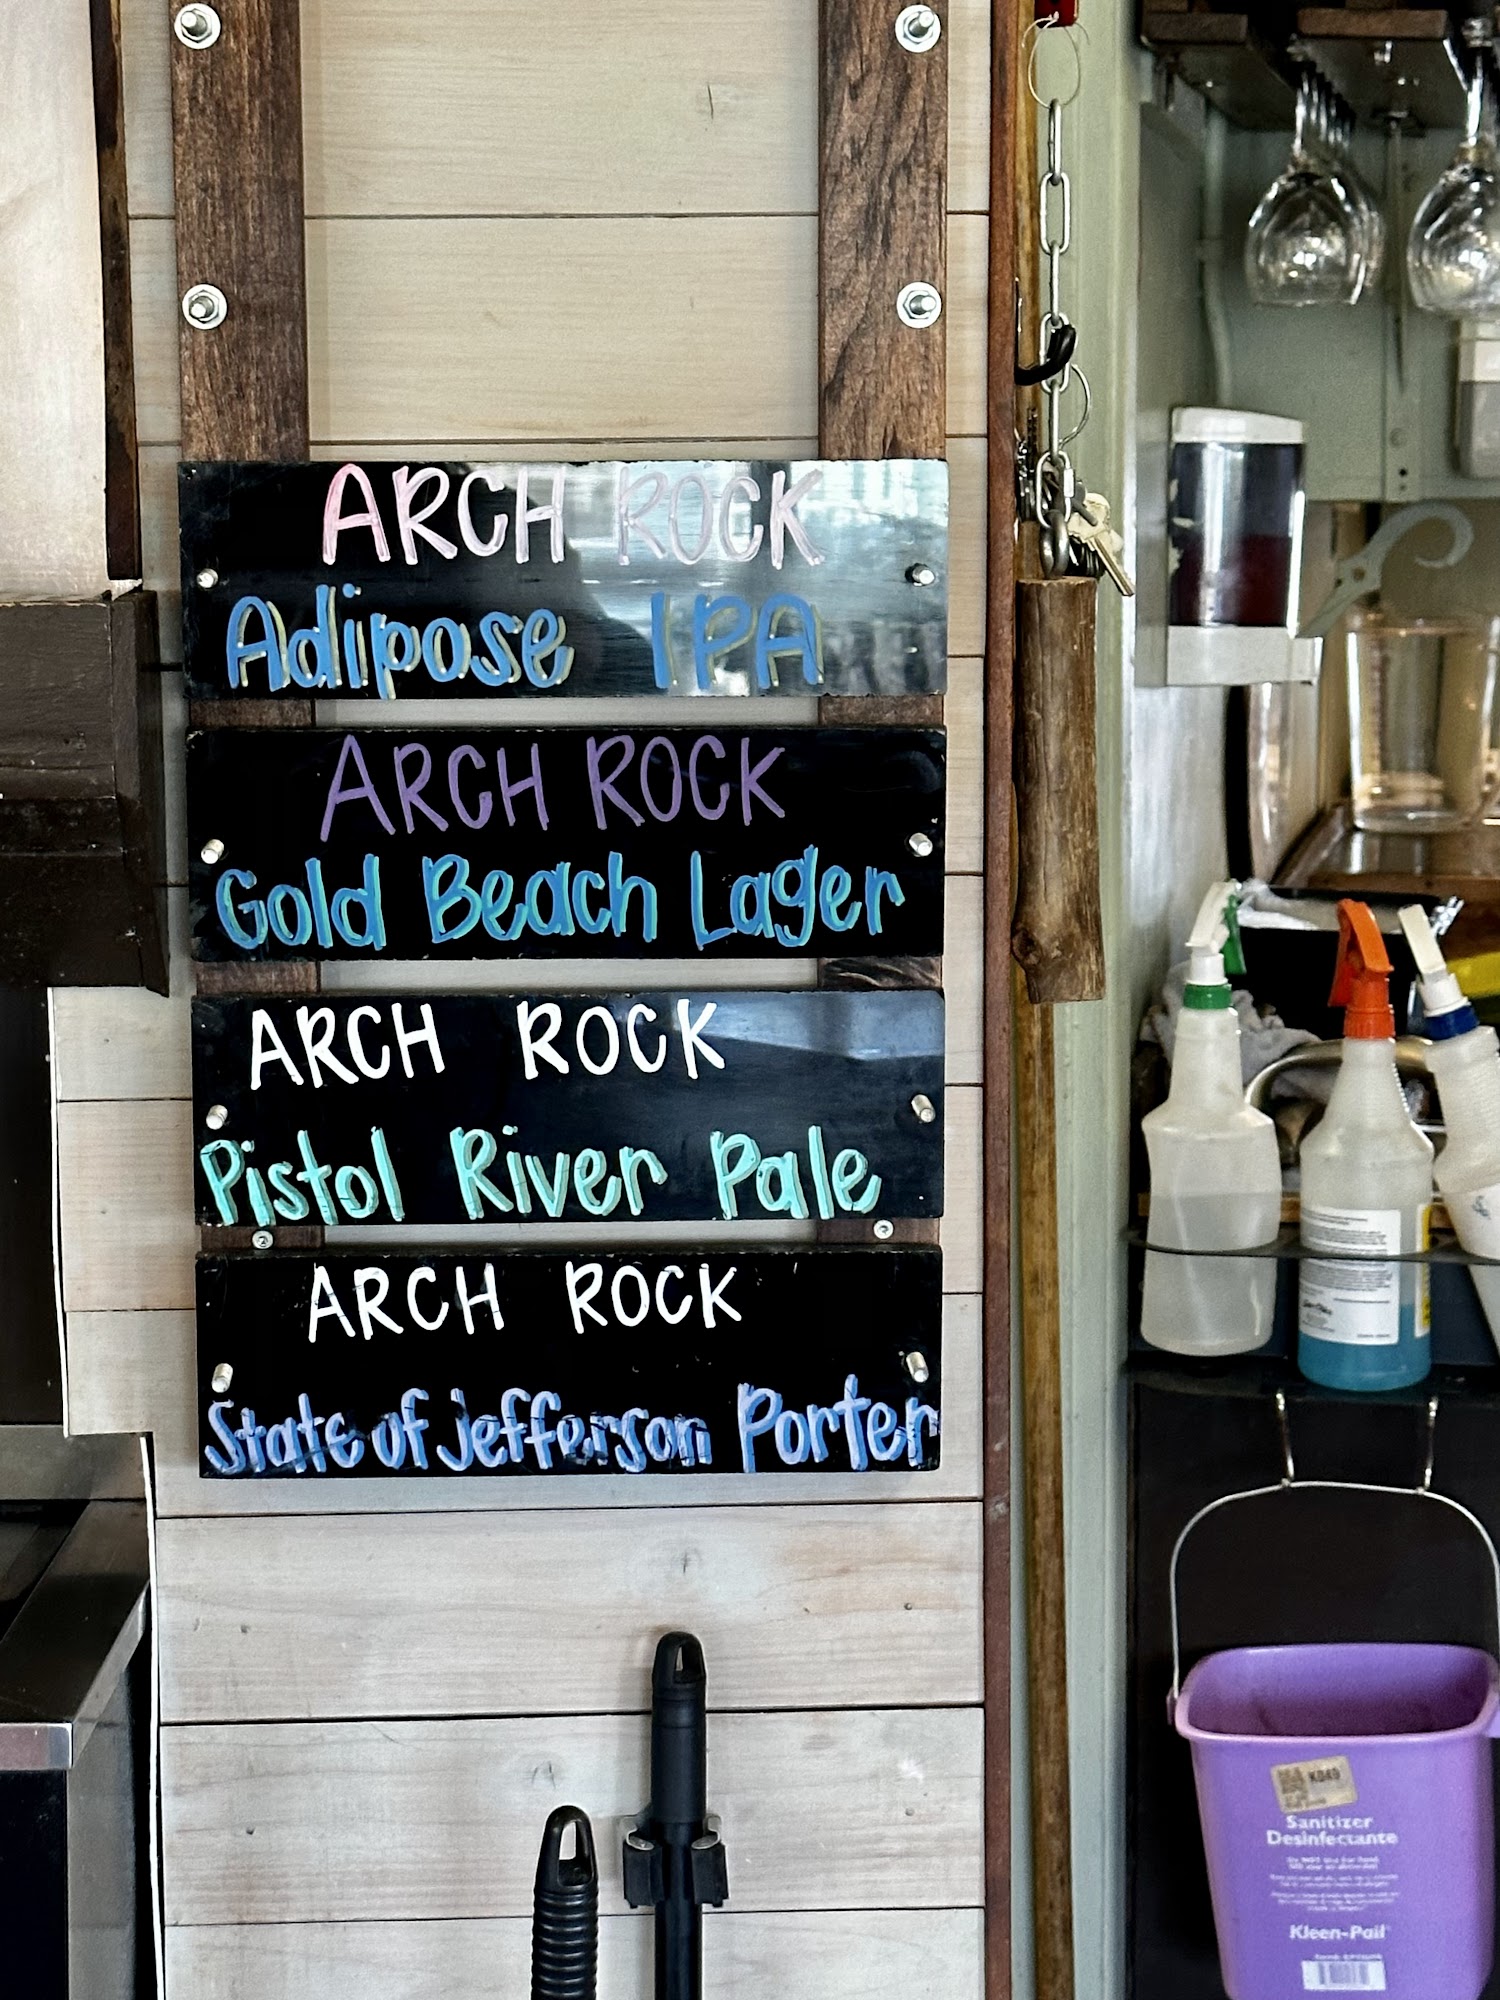 ARCH ROCK
Adipose IPA
ARCH ROCK
Gold Beach Lager
ARCH ROCK
Pistol River Pale
ARCH ROCK
State of Jefferson Porter
K049
Sanitizer
Desinfectante
Kleen-Pail